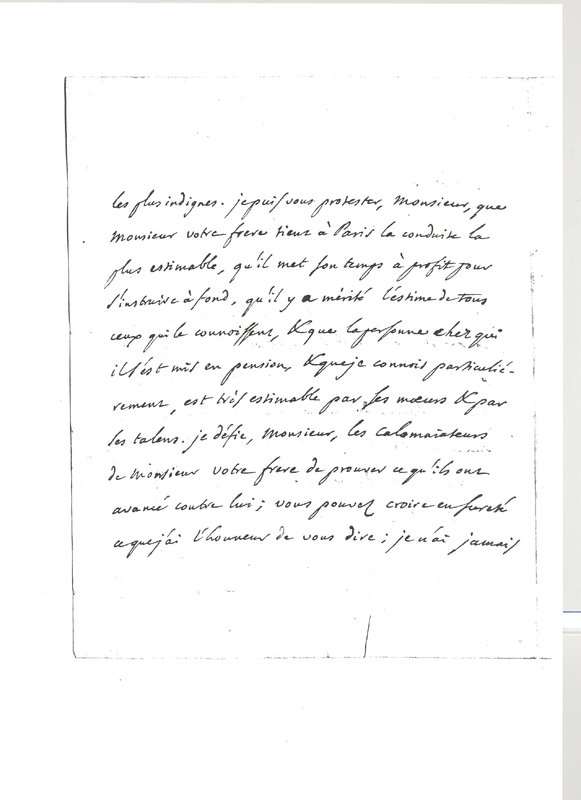 les plus indignes. je puis vous protester, Monsieur, que
Monsieur votre frere tient à Paris la conduite la
plus estimable, qu'il met son temps à profit pour
s'instruire à fond, qu'il y a mérité l'estime de tous
ceux qui le connoissent, & que la personne chez qui
il s'est mis en pension, & que je connois particulié-
rement, est très estimable par ses mœurs & par
ses talens. je défie, Monsieur, les calomniateurs
de Monsieur votre frere de prouver ce qu'ils ont
avancé contre lui ; vous pouvez croire en sureté
ce que j'ai l'honneur de vous dire ; je n'ai jamais